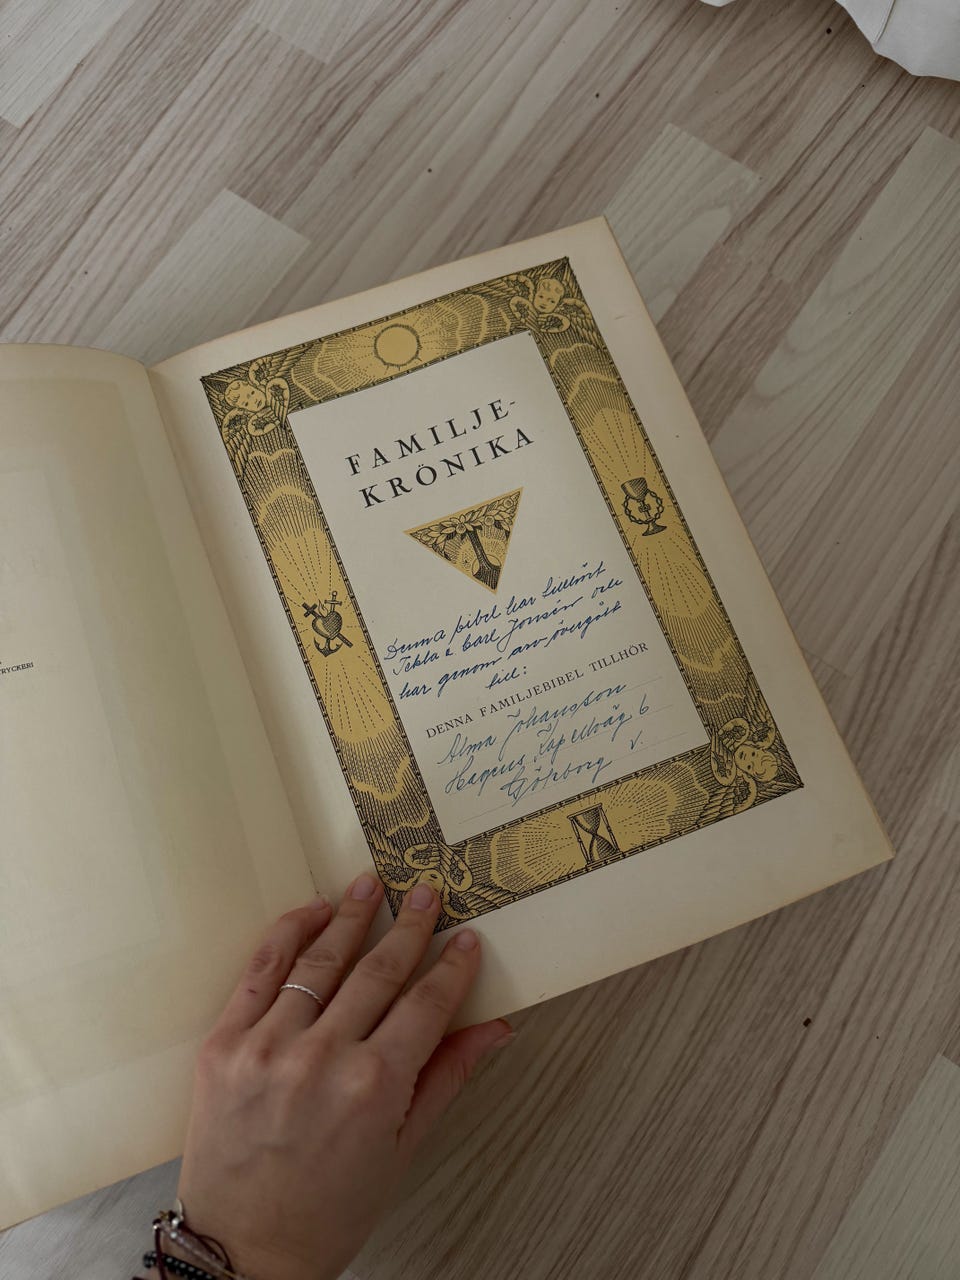 TRYCKERI
FAMILJE-
KRÖNIKA
Denna bibel har tillhört
Tekla & Carl Jonsén och
har genom arv övergått
till:
DENNA FAMILJEBIBEL TILLHÖR
Alma Johansson
Kapellväg 6
Göteborg V.